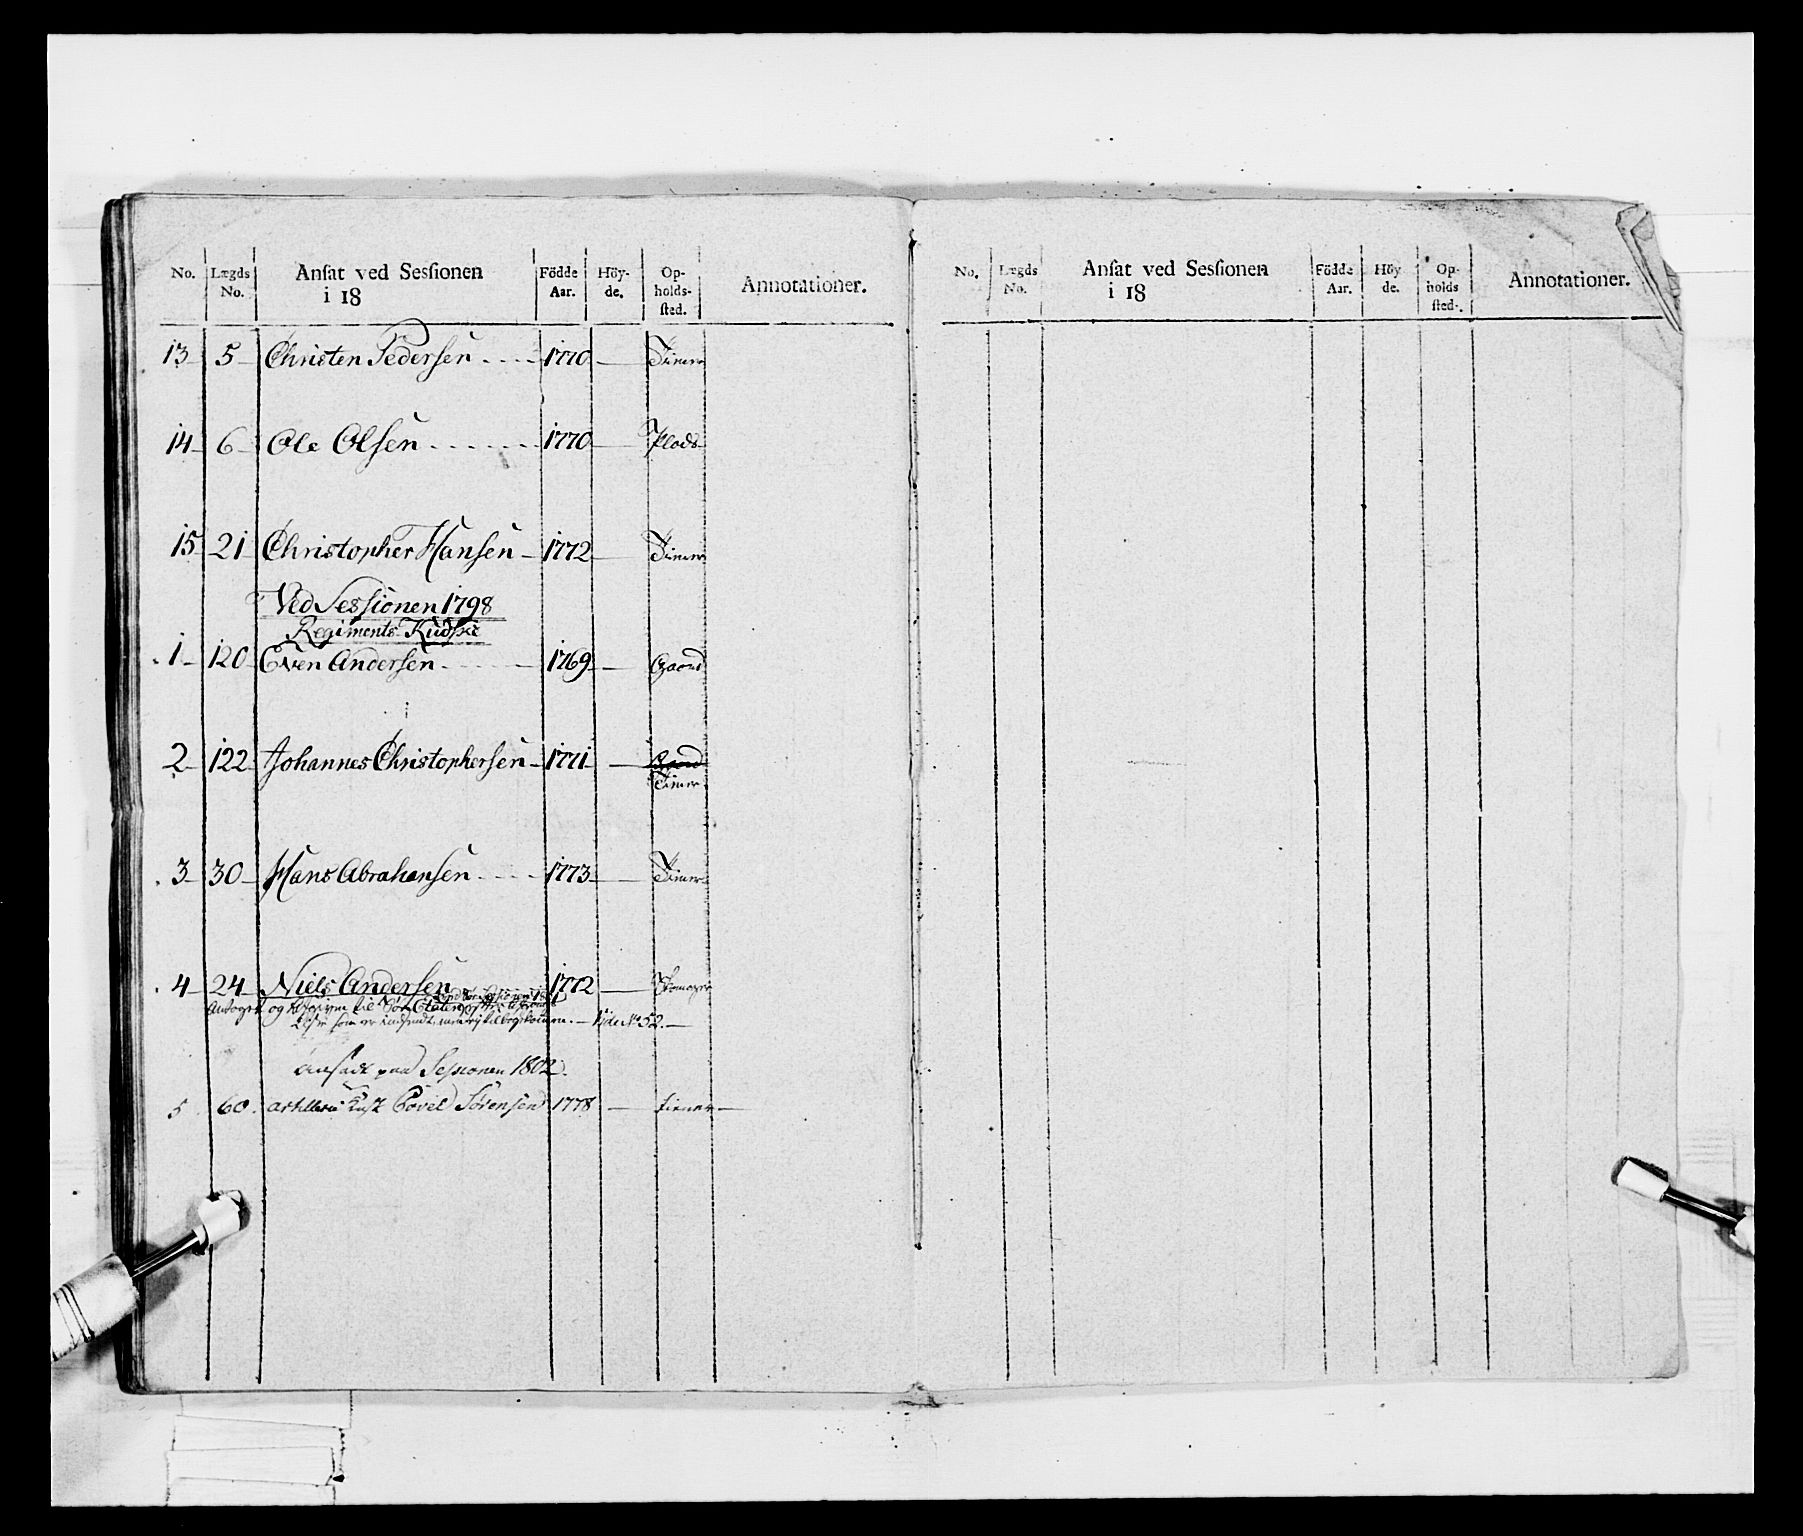 No. Lægds No. Ansat ved Sessionen i 18 Födde Aar. Höy-de. Op-holds-sted. Annotationer.
13 5 Christen Pedersen 1770 Tiener
14 6 Ole Olsen 1770 Plads
15 21 Christopher Hansen 1772 Tiener
Ved Sessionen 1798
Regiments Kudske
1 120 Even Andersen 1769 Gaard
2 122 Johannes Christophersen 1771 Gaard
Tiener
3 30 Hans Abrahamsen 1773 Tiener
4 24 Niels Andersen 1772
Antaget og til
som er indsendt No 52
Ansadt paa Sessionen 1802
5 60 Artillerie Kusk Povel Sørensen 1778 tiener
No. Lægds No. Ansat ved Sessionen i 18 Födde Aar. Höy de. Op-holds sted. Annotationer.